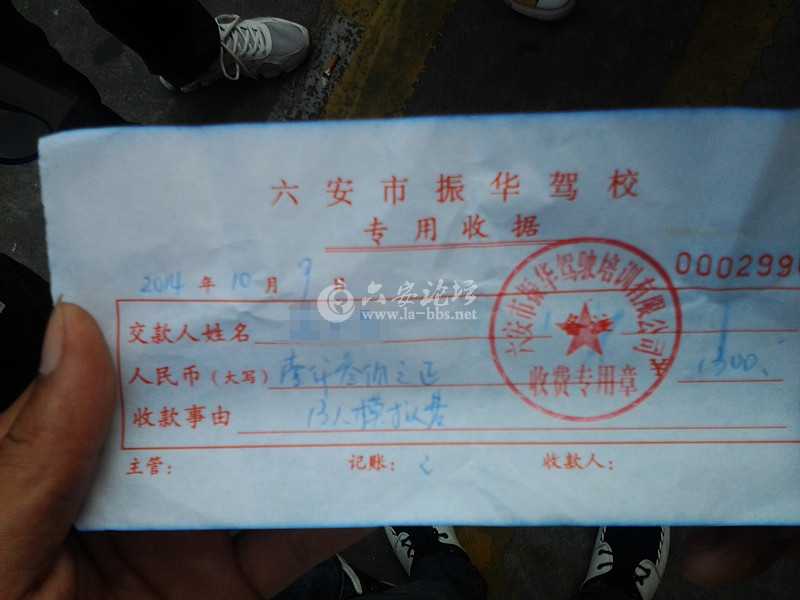 六安市振华驾校
专用收据
2014年10月9日
000299
六安论坛
www.la-bbs.net
交款人姓名
六安市振华驾驶培训有限公司
收费专用章
人民币（大写）壹仟叁佰元正
1300.
收款事由 13人模拟费
主管：
记账：
收款人：